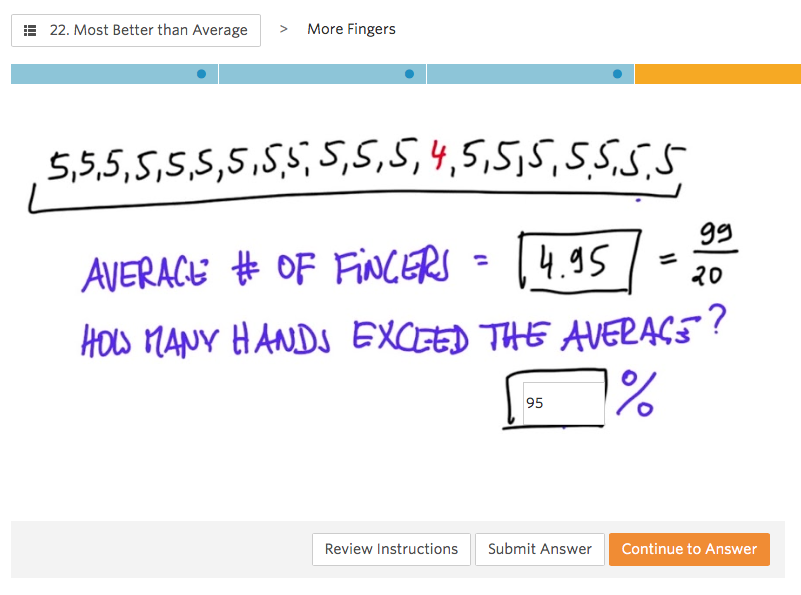 22. Most Better than Average > More Fingers
5,5,5,5,5,5,5,5,5,5,5,5,4,5,5,5,5,5,5,5
AVERAGE # OF FINGERS = 4.95 = 99/20
HOW MANY HANDS EXCEED THE AVERAGE?
95 %
Review Instructions Submit Answer Continue to Answer